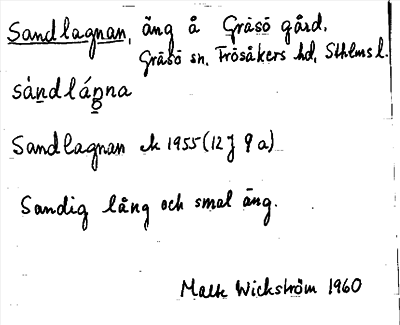 Sandlagnan, äng å Gräsö gård,
Gräsö sn, Frösåkers hd, Sthlms l.
sàndláṇna
Sandlagnan ek 1955 (12J 9a)
Sandig lång och smal äng.
Wickström 1960